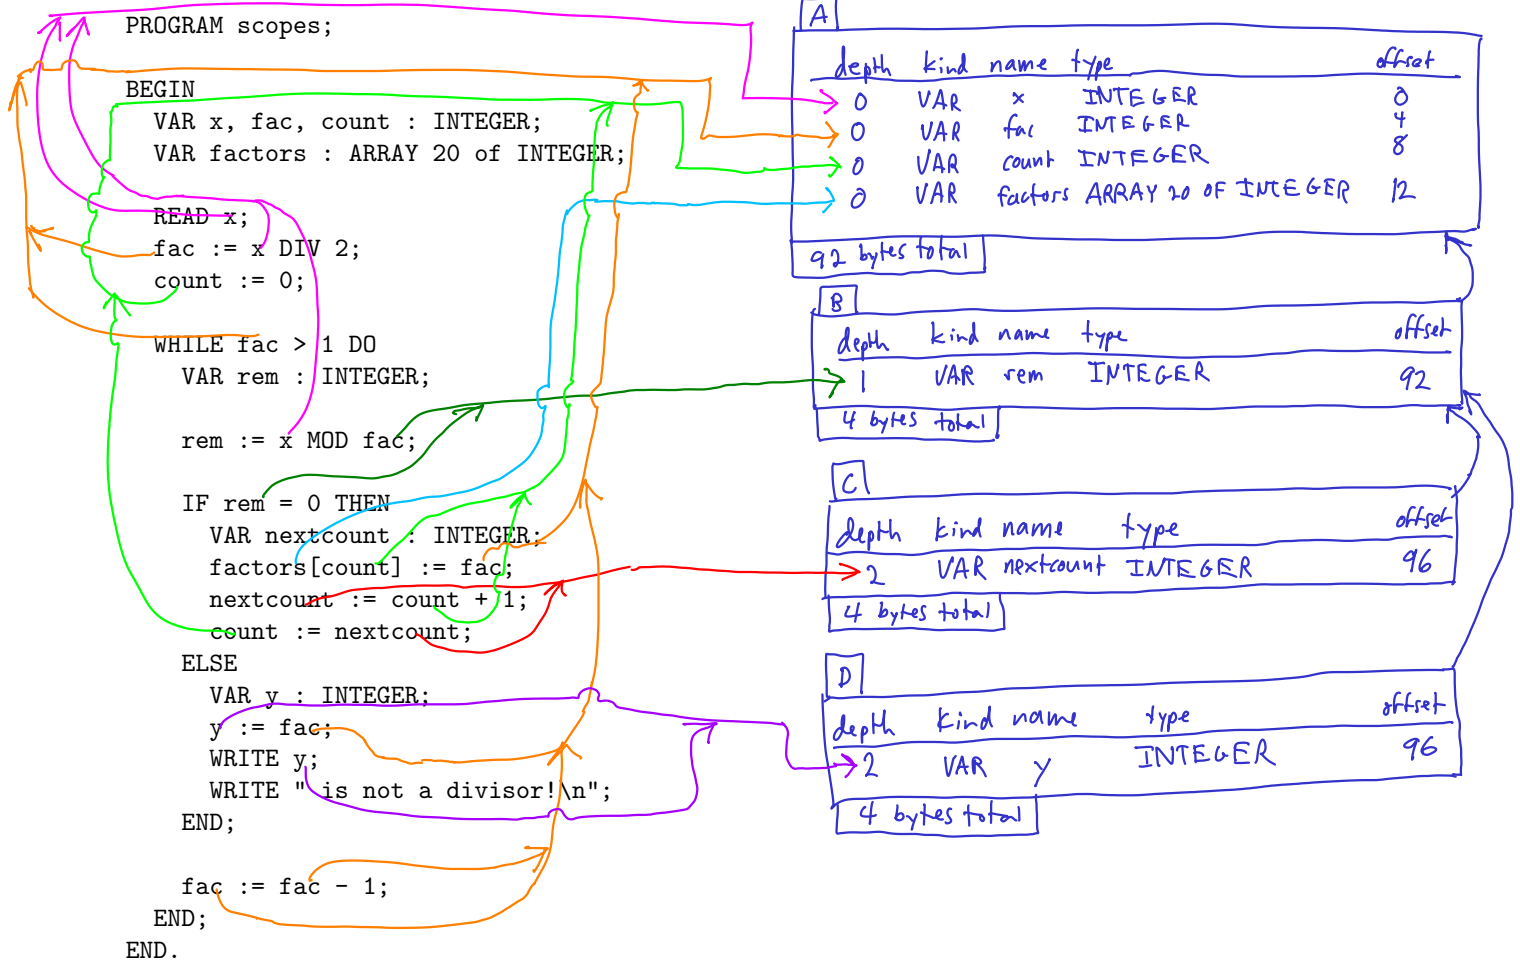 PROGRAM scopes;
BEGIN
VAR x, fac, count : INTEGER;
VAR factors : ARRAY 20 of INTEGER;
READ x;
fac := x DIV 2;
count := 0;
WHILE fac > 1 DO
VAR rem : INTEGER;
rem := x MOD fac;
IF rem = 0 THEN
VAR nextcount : INTEGER;
factors[count] := fac;
nextcount := count + 1;
count := nextcount;
ELSE
VAR y : INTEGER;
y := fac;
WRITE y;
WRITE " is not a divisor!\n";
END;
fac := fac - 1;
END;
END.
A
depth kind name type offset
0 VAR x INTEGER 0
0 VAR fac INTEGER 4
0 VAR count INTEGER 8
0 VAR factors ARRAY 20 OF INTEGER 12
92 bytes total
B
depth kind name type offset
1 VAR rem INTEGER 92
4 bytes total
C
depth kind name type offset
2 VAR nextcount INTEGER 96
4 bytes total
D
depth kind name type offset
2 VAR y INTEGER 96
4 bytes total